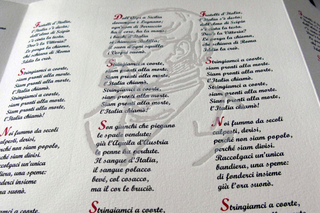 Fratelli d'Italia,
l'Italia s'è desta,
dell'elmo di Scipio
s'è cinta la testa.
Dov'è la Vittoria?
Le porga la chioma,
ché schiava di Roma
Iddio la creò.
Stringiamci a coorte,
siam pronti alla morte.
Siam pronti alla morte,
l'Italia chiamò!
Noi fummo da secoli
calpesti, derisi,
perché non siam popolo,
perché siam divisi.
Raccolgaci un'unica
bandiera, una speme:
di fonderci insieme
già l'ora suonò.
Stringiamci a coorte,
Dall'Alpi a Sicilia
dovunque è Legnano,
ogn'uom di Ferruccio
ha il core, ha la mano,
il suon d'ogni squilla
i Vespri suonò.
Stringiamci a coorte,
siam pronti alla morte.
Siam pronti alla morte,
l'Italia chiamò!
Son giunchi che piegano
le spade vendute:
già l'Aquila d'Austria
le penne ha perdute.
Il sangue d'Italia,
il sangue polacco
bevé, col cosacco,
ma il cor le bruciò.
Stringiamci a coorte,
Fratelli d'Italia,
l'Italia s'è desta,
dell'elmo di Scipio
s'è cinta la testa.
Dov'è la Vittoria?
Le porga la chioma,
ché schiava di Roma
Iddio la creò.
Stringiamci a coorte,
siam pronti alla morte.
Siam pronti alla morte,
l'Italia chiamò!
Noi fummo da secoli
calpesti, derisi,
perché non siam popolo,
perché siam divisi.
Raccolgaci un'unica
bandiera, una speme:
di fonderci insieme
già l'ora suonò.
Stringiamci a coorte,